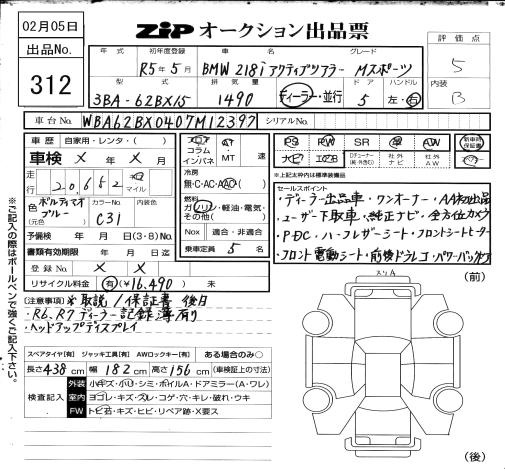 02月05日
ZIP オークション出品票
出品No.
312
年式 初年度登録 車名 グレード
R5年5月 BMW 218i アクティブツアラー Mスポーツ
型式 排気量 ドア ハンドル
3BA-62BX15 1490 ディーラー・並行 5 左・右
評価点
5
内装
B
車台No. WBA62BX0407M12397 シリアルNo.
車歴 自家用・レンタ・( )
車検 × 年 × 月
走行 20,652 マイル
色 ポルティマオブルー カラーNo. C31 内装色
予備検 年 月 日 (3・8) No.
書類有効期限 年 月 日
登録No. × ×
リサイクル料金 有(¥16,490) 未
フロア コラム インパネ AT MT 速
冷房 無・C・AC・AAC
燃料 ガソリン・軽油・電気・その他( )
Nox 適合・非適合
乗車定員 5 名
PS PW SR AW 新車時保証書
ナビ エアB Dチューナー(純・社外含む) 社外ナビ 社外AW
※上記太枠内は標準装備品
セールスポイント
・ディーラー出品車・ワンオーナー・AA初出品
・ユーザー下取車・純正ナビ・全方位カメラ
・PDC・ハーフレザーシート・フロントシートヒーター
・フロント電動シート・前後ドラレコ・パワーバックドア
[注意事項] ※取説/保証書 後日
・R6、R7ディーラー記録簿有り
・ヘッドアップディスプレイ
スペアタイヤ[有] ジャッキ工具[有] AWロックキー[有] ある場合のみ○
長さ 438 cm 幅 182 cm 高さ 156 cm (車検証上の寸法)
検査記入
外装 小キズ・小凹・シミ・ボイルA・ドアミラー(A・ワレ)
室内 ヨゴレ・キズ・スレ・コゲ・穴・キレ・破れ・ウキ
FW トビ石・キズ・ヒビ・リペア跡・X要ス
スリA
(前)
(後)
※ご記入の際はボールペンで強くご記入下さい。